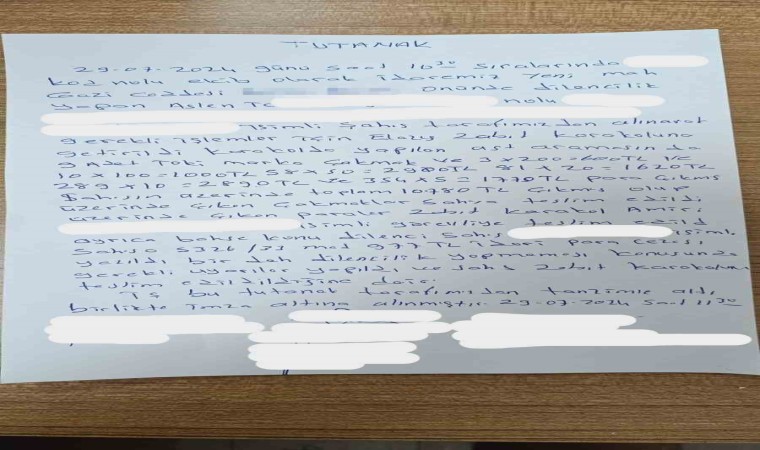 TUTANAK
29.07.2024 günü saat 10 30 sıralarında
kod nolu ekip olarak idaremiz Yeni mah
Gazi Caddesi önünde dilencilik
yapan Aslen Te nolu
isimli şahıs tarafımızdan alınarak
gerekli işlemler için Elazığ Zabıt Karakoluna
getirildi karakolda yapılan üst aramasında
9 Adet Toki marka Çakmak ve 3x200=600TL ve
10x100=1000TL 58x50=2900TL 81x20=1620TL
289x10=2890TL ve 354x5=1770TL para çıkmış
Şahısın üzerinde toplam 10780TL çıkmış olup
üzerinde çıkan çakmaklar şahsa teslim edildi
üzerinde çıkan paralar Zabıt Karakol Amiri
isimli görevliye teslim edildi
ayrıca bahse konu dilenci şahıs isimli
şahsa 5326/33 mad 977TL idari para cezası
yazıldı bir dah dilencilik yapmaması konusunda
gerekli uyarılar yapıldı ve şahıs Zabıt Karakoluna
teslim edildiğine dair.
İş bu tutanak tarafımızdan tanzimle altı
birlikte imza altına alınmıştır. 29.07.2024 saat 11 30